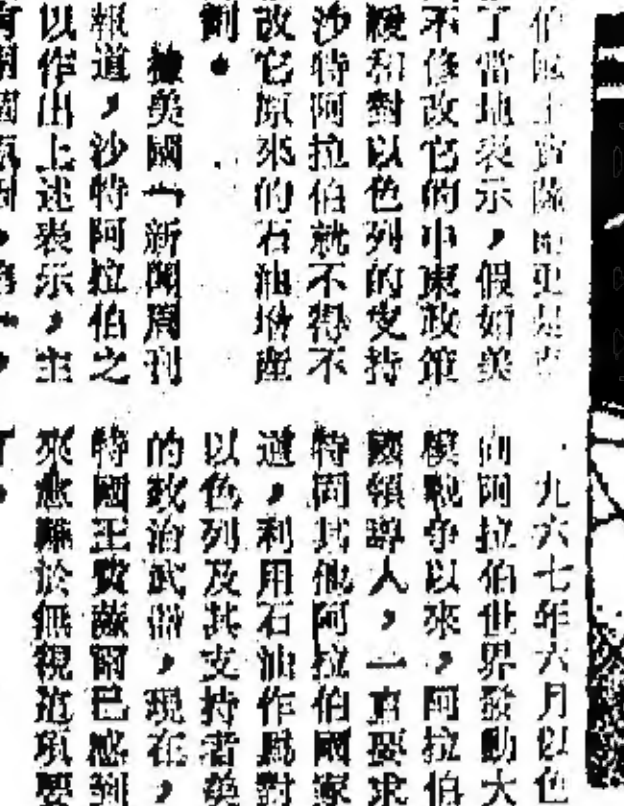 伯國王費薩爾更是直
了當地表示，假如美
不修改它的中東政策
緩和對以色列的支持
沙特阿拉伯就不得不
改它原來的石油增產
劃。
據美國「新聞周刊
報道，沙特阿拉伯之
以作出上述表示，主
一九六七年六月以色
向阿拉伯世界發動大
模戰争以來，阿拉伯
國領導人，一直要求
特同其他阿拉伯國家
道，利用石油作爲對
以色列及其支持者美
的政治武器，現在，
特國王費薩爾已感到
來愈難於無視這項要